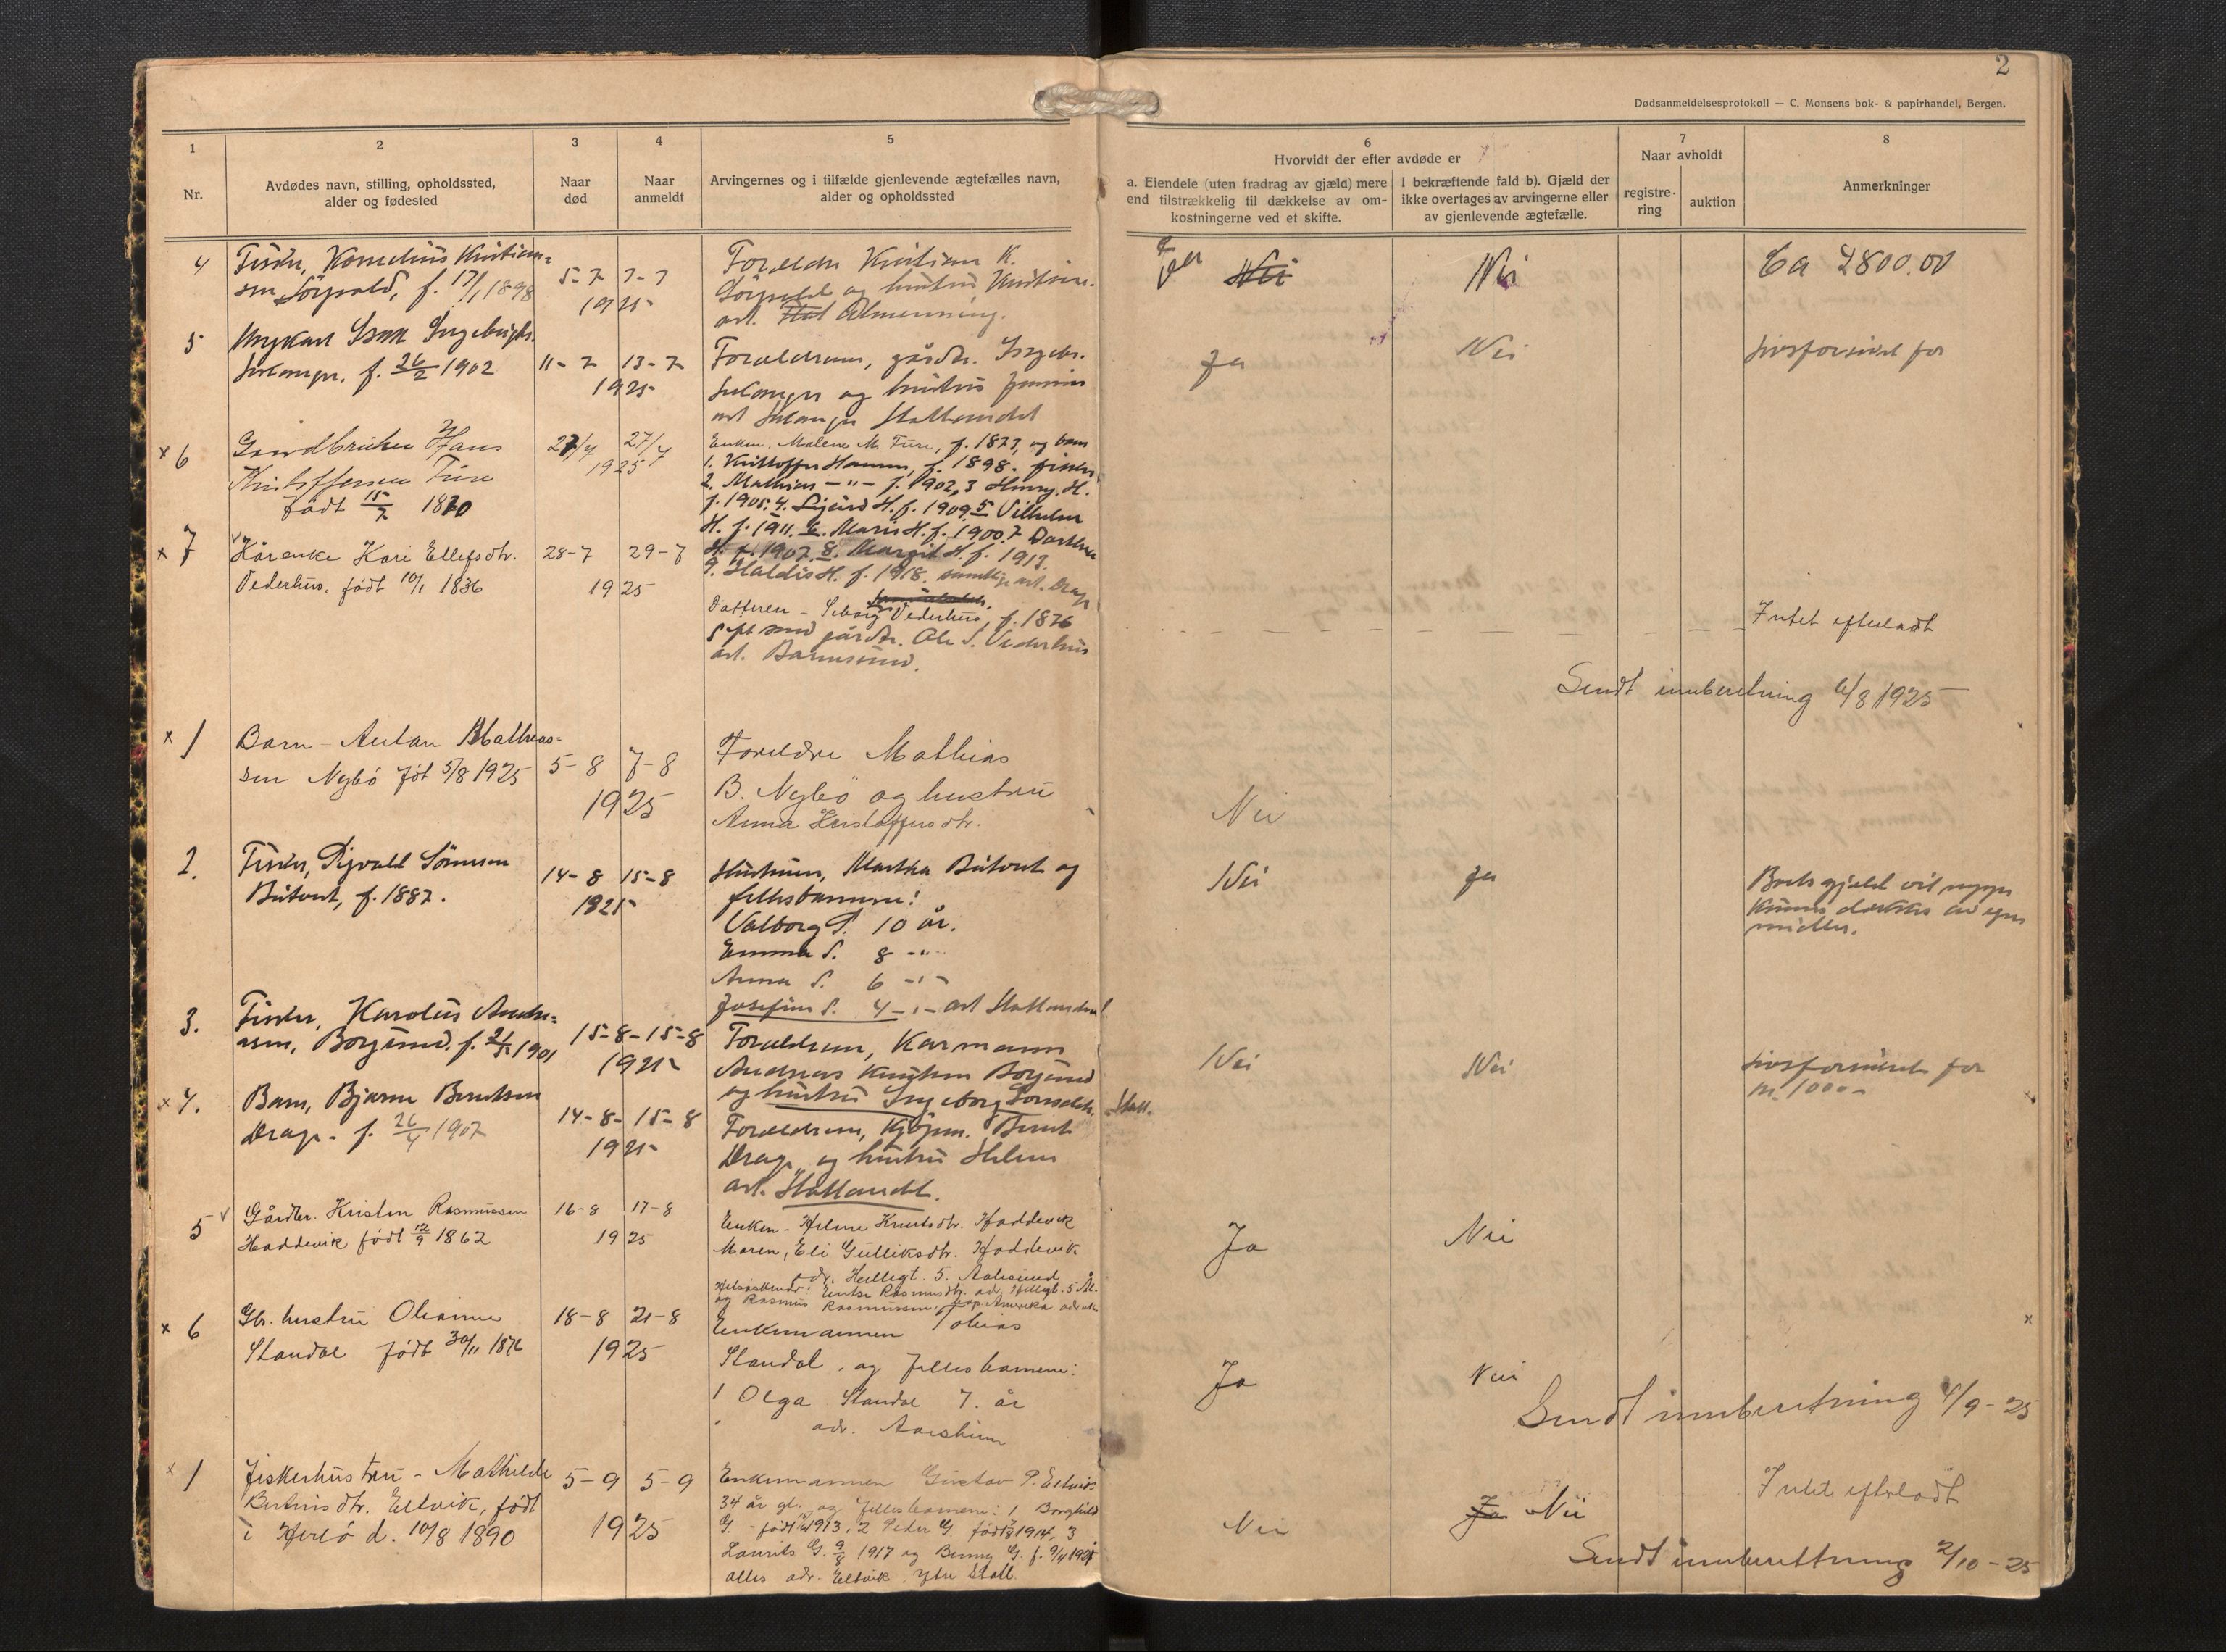 2
Dødsanmeldelsesprotokoll — C. Monsens bok- & papirhandel, Bergen.
1
Nr.
2
Avdødes navn, stilling, opholdssted,
alder og fødested
3
Naar
død
4
Naar
anmeldt
5
Arvingernes og i tilfælde gjenlevende ægtefælles navn,
alder og opholdssted
6
Hvorvidt der efter avdøde er
a. Eiendele (uten fradrag av gjæld) mere
end tilstrækkelig til dækkelse av om-
kostningerne ved et skifte.
I bekræftende fald b). Gjæld der
ikke overtages av arvingerne eller
av gjenlevende ægtefælle.
7
Naar avholdt
registre-
ring
auktion
8
Anmerkninger
4
Fisker, Kornelius Kristian-
sen Sörpold, f. 17/1 1898
5-7 7-7
1925
Foreldre Kristian K.
og hustru
adr. Almenning.
Ja Nei
Nei
Ca 2800.00
5
Ungkar Isak Ingebrigts.
f. 26/2 1902
11-7 13-7
1925
Foreldrene, gårdbr. Ingebr.
og hustru
adr. Stattlandet
Ja
Nei
Livsforsikret for
x 6
Gaardbruker Hans
Kristoffersen Fure
født 15/7 1870
27/7 27/7
1925
Enken, Malene M. Fure, f. 1877, og barn
1. Kristoffer Hansen, f. 1898. fisker
2. Mathias -"- f. 1902, 3 Henry. H.
f. 1905. 4. Sigurd H. f. 1909. 5 Vilhelm
H. f. 1911. 6. Marie H. f. 1900. 7 Dorthea
H. f. 1907. 8. Margit H. f. 1913.
9. Haldis H. f. 1918. samtlige adr. Drage
x 7
Kårenke Kari Ellefsdtr.
Vederhus, født 10/1 1836
28-7 29-7
1925
Datteren - Vederhus, f. 1876
gift med gårdbr. Ole S. Vederhus
adr. Barmsund.
Intet efterladt
Sendt innberetning 6/8 1925
x 1
Barn - Anton Mathias-
sen Nybö föt 5/8 1925
5-8 7-8
1925
Foreldre Mathias
B. Nybö og hustru
Anna Kristoffersdtr.
Nei
2.
Fisker, Sörensen
f. 1887.
14-8 15-8
1925
Hustruen, Martha og
fellesbarnene:
Valborg S. 10 år.
Emma S. 8 -"-
Anna S. 6 -"-
Josefine S. 4 -"- adr Stattlandet
Nei
Ja
midler.
3.
Fisker, Karolus Andre-
asen, Borgund. f. 1901
15-8-15-8
1925
Foreldrene, Kårmann
Andreas Borgund
og hustru Ingeborg Larsdtr. Statt.
Nei
Nei
Livsforsikret for
kr. 1000-
x 4.
Barn, Bjarne Berntsen
Drage - f. 26/4 1907
14-8- 15-8
1925
Foreldrene, Kjöpm. Bernt
Drage og hustru Helene
adr. Stattlandet.
5
Gårdbr. Kristen Rasmussen
Haddevik född 12/9 1862
16-8 17-8
1925
Enken - Helene Knutsdtr. Haddevik
Moren, Eli Gulliksdtr. Haddevik
adr. Helligt. 5. Aalesund
Ja
Nei
x 6
Gbr. hustru Olianne
Standal födt 30/11 1876
18-8 21-8
1925
Enkemannen Tobias
Standal, og fellesbarnene:
1 Olga Standal 7. år
adr. Aarsheim
Ja
Nei
Sendt innberetning 4/9-25
x 1
Fiskerhustru - Mathilde
Bertinsdtr. Eltvik, född
i Herlö d. 10/8 1890
5-9 5-9
1925
Enkemannen Gustav P. Eltvik
34 år gl. og fellesbarnene: 1 Borghild
G. - född 1913, 2 Peder G. född 1914, 3
Laurits G. 9/8 1917 og Benny G. f. 9/4 1921
alles adr. Eltvik, ytre Statt
Nei
Ja Nei
Intet efterladt
Sendt innberettning 2/10-25